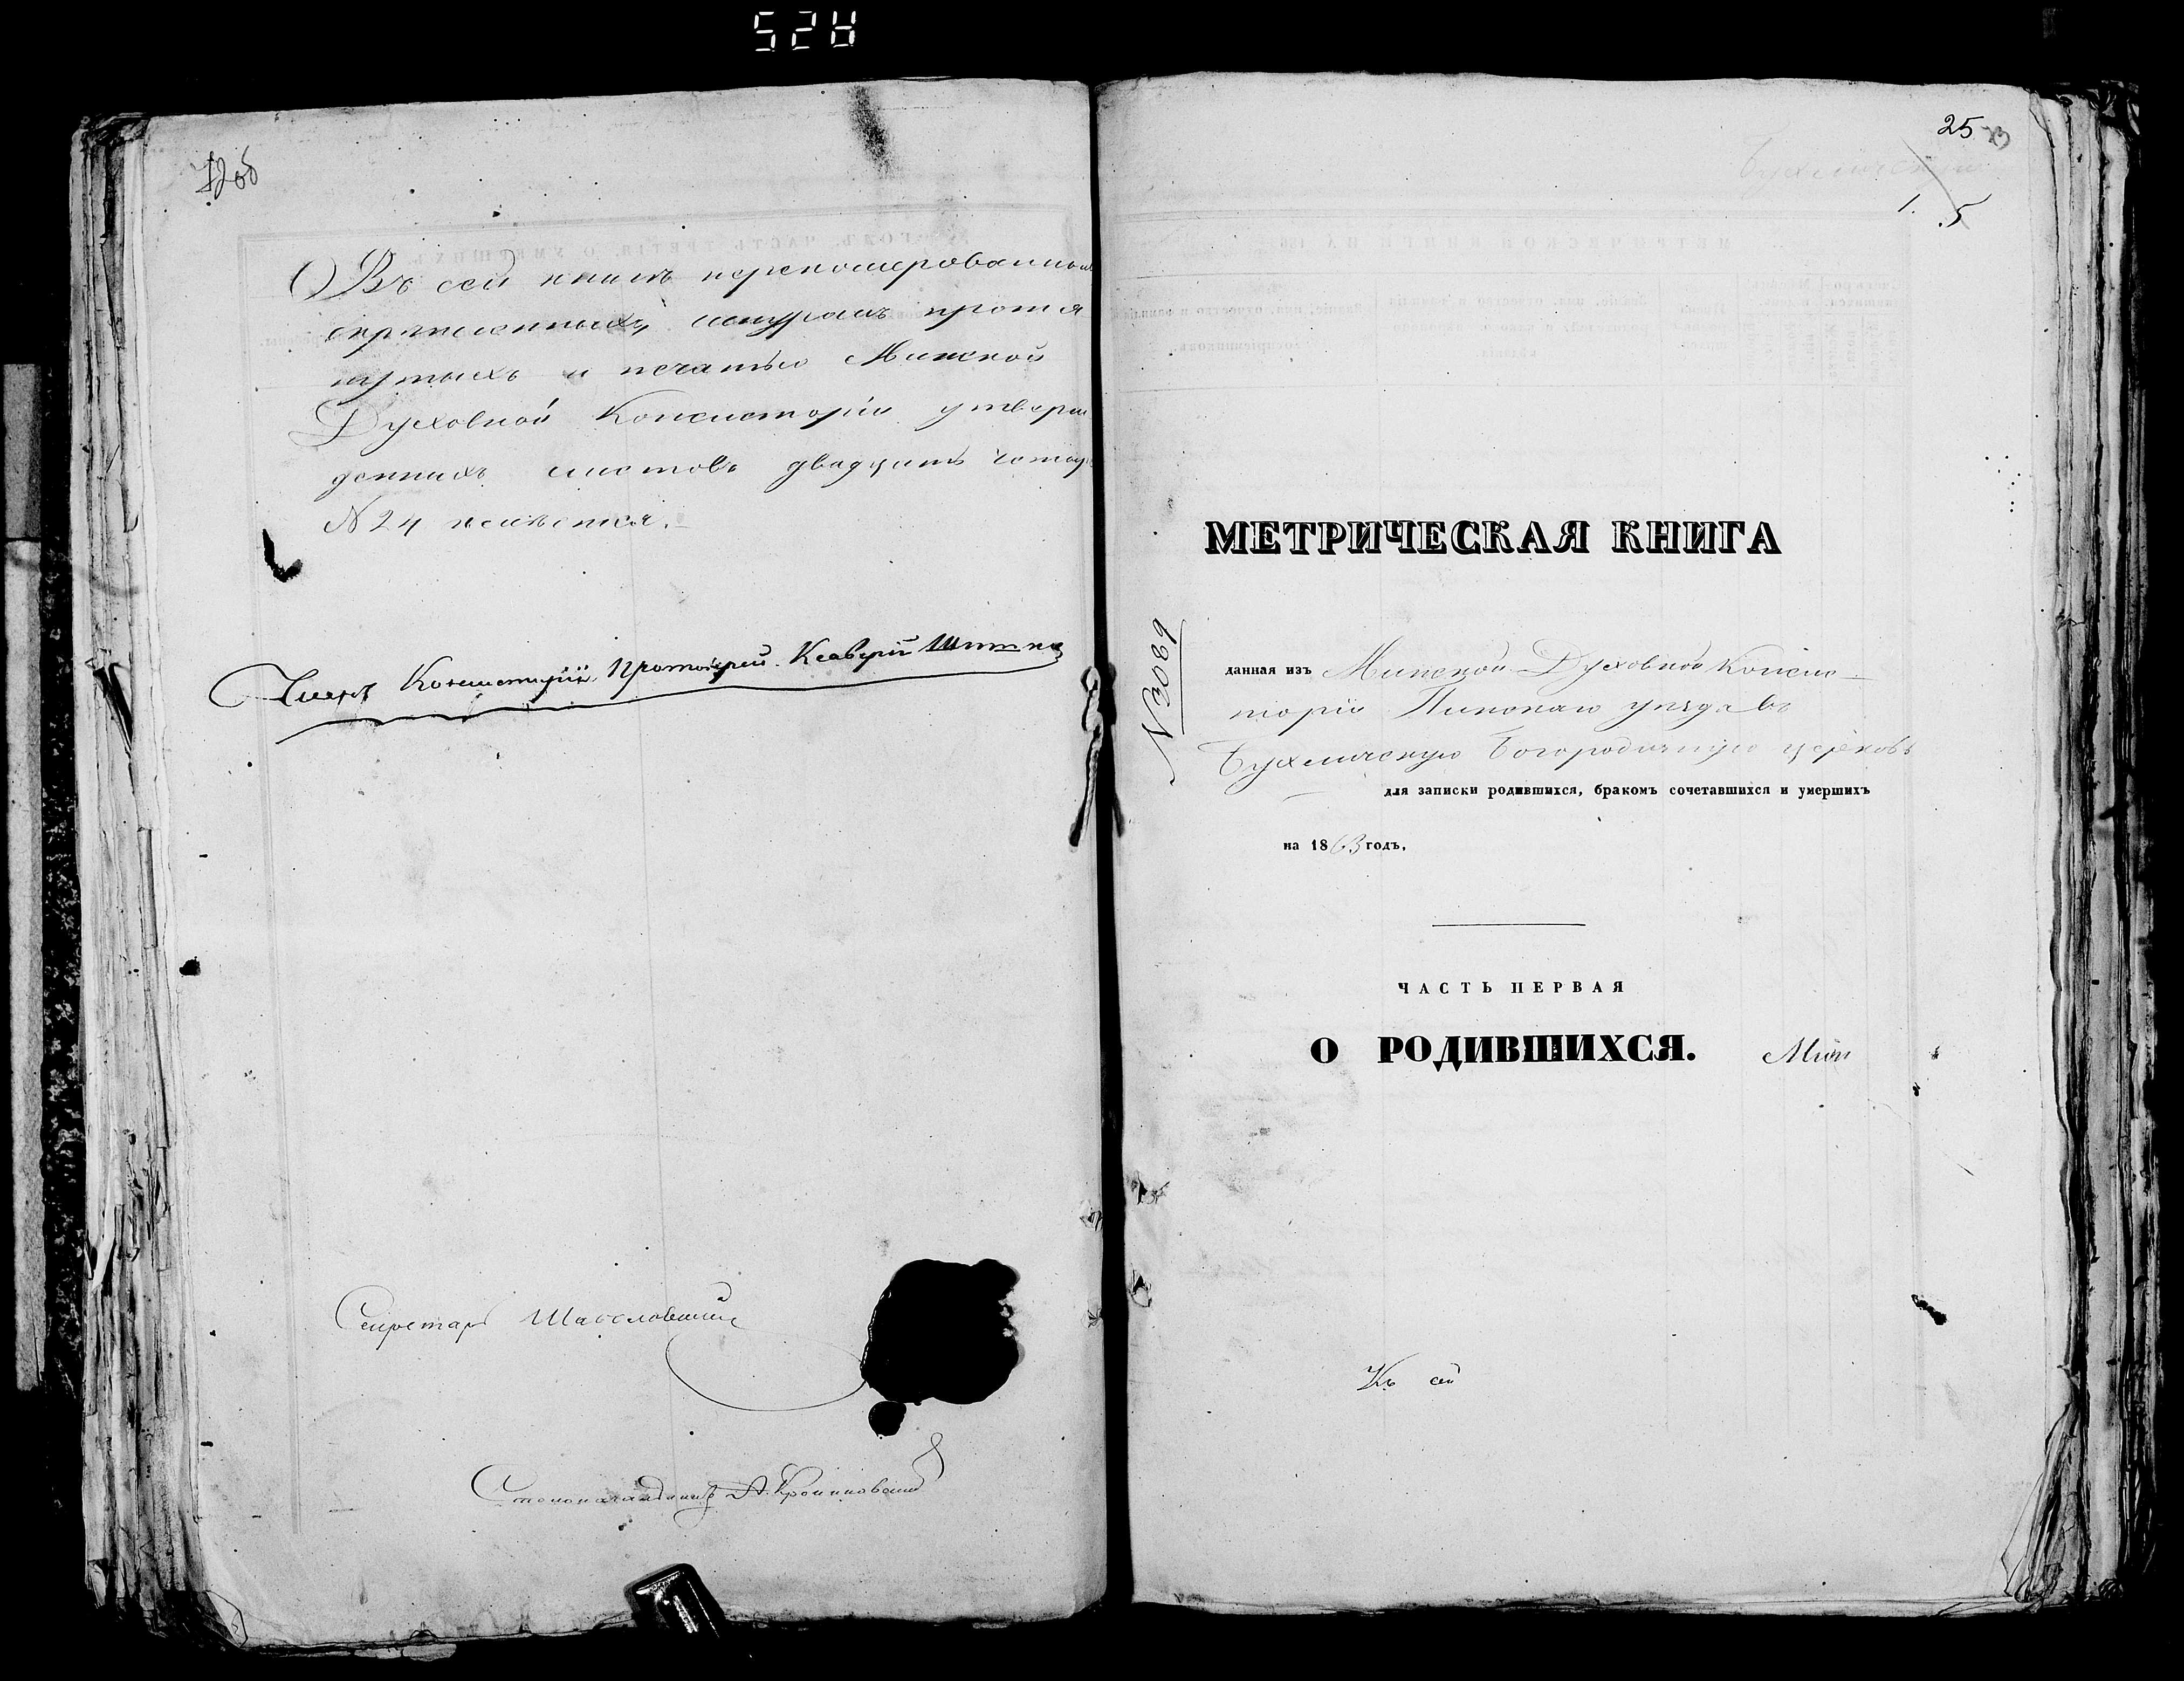 528
Въ сей книгѣ перенумерованныхъ
скрѣпленныхъ, шнуромъ протя
нутыхъ и печатью Минской
Духовной Консисторіи утверж
денныхъ листовъ двадцать четыре
N 24 имѣется.
Членъ Консисторіи, Протоіерей Ксаверій
Секретарь
Столоначальникъ А.
25
1. 5
МЕТРИЧЕСКАЯ КНИГА
N 3089
данная изъ Минской Духовной Консис-
торіи Пинскаго уѣзда въ
Бухличскую Богородичную церковь
для записки родившихся, бракомъ сочетавшихся и умершихъ
на 1863 годъ.
ЧАСТЬ ПЕРВАЯ
О РОДИВШИХСЯ.
Къ сей